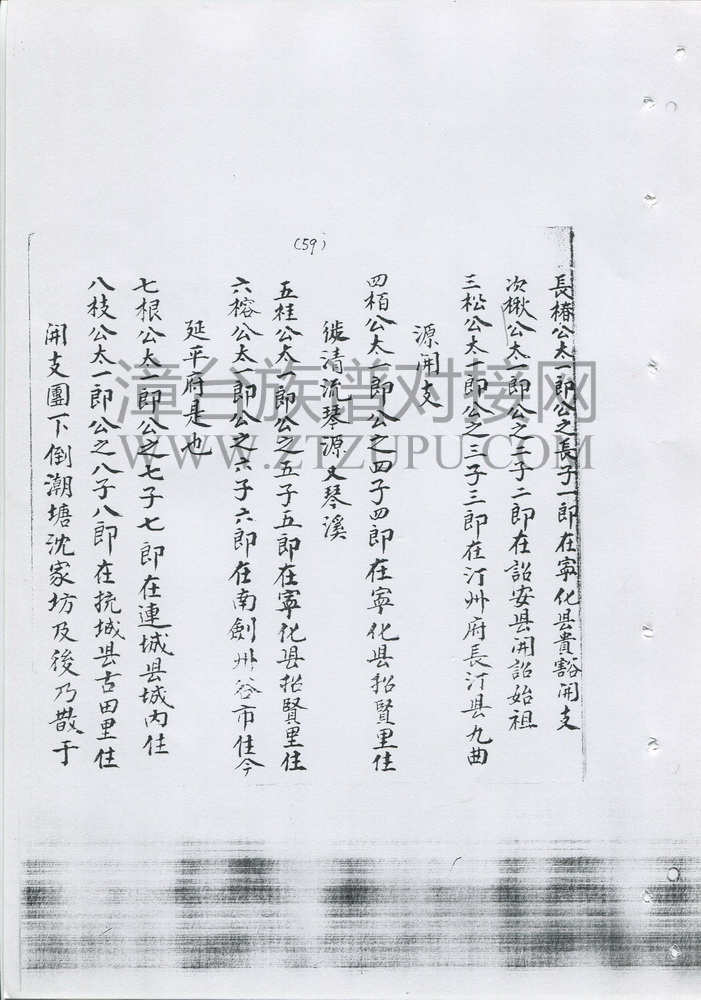 (59)
長椿公太一郎公之長子一郎在寧化县貴谿開支
次楸公太一郎公之二子二郎在詔安县開詔始祖
三松公太一郎公之三子三郎在汀州府長汀县九曲
源開支
四栢公太一郎公之四子四郎在寧化县招賢里住
徙清流琴源又琴溪
五桂公太一郎公之五子五郎在寧化县招賢里住
六榕公太一郎公之六子六郎在南劍州谷市住今
延平府是也
七根公太一郎公之七子七郎在連城县城内住
八枝公太一郎公之八子八郎在抗城县古田里住
開支團下倒潮塘沈家坊及後乃散于
漳台族谱对接网
WWW.ZTZUPU.COM